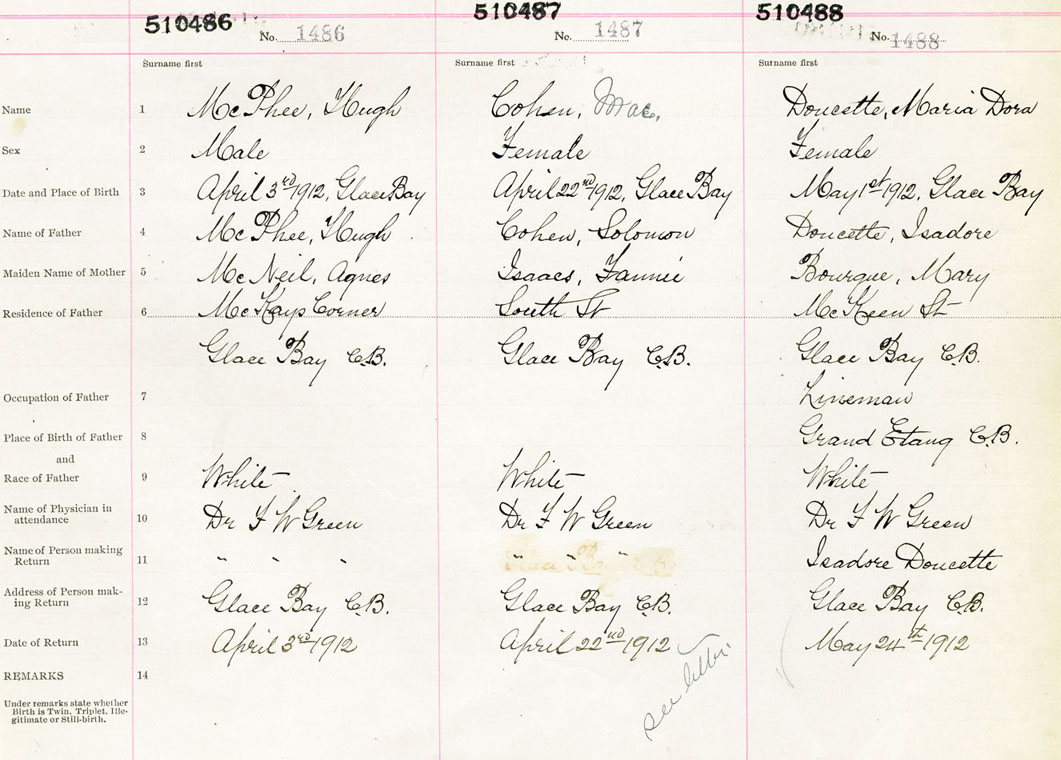 510486 510487 510488
No. 1486 No. 1487 No. 1488
Surname first Surname first Surname first
Name 1 McPhee, Hugh Cohen, Mae, Doucette, Maria Dora
Sex 2 Male Female Female
Date and Place of Birth 3 April 3rd 1912, Glace Bay April 22nd 1912, Glace Bay May 1st 1912, Glace Bay
Name of Father 4 McPhee, Hugh Cohen, Solomon Doucette, Isadore
Maiden Name of Mother 5 McNeil, Agnes Isaacs, Fannie Bourque, Mary
Residence of Father 6 McKays Corner South St McKeen St
Glace Bay C.B. Glace Bay C.B. Glace Bay C.B.
Occupation of Father 7 Lineman
Place of Birth of Father 8 Grand Etang C.B.
and
Race of Father 9 White White White
Name of Physician in
attendance 10 Dr F W Green Dr F W Green Dr F W Green
Name of Person making
Return 11 " " " " " " Isadore Doucette
Address of Person mak-
ing Return 12 Glace Bay C.B. Glace Bay C.B. Glace Bay C.B.
Date of Return 13 April 3rd 1912 April 22nd 1912 May 24th 1912
REMARKS 14
see letter
Under remarks state whether
Birth is Twin, Triplet, Ille-
gitimate or Still-birth.